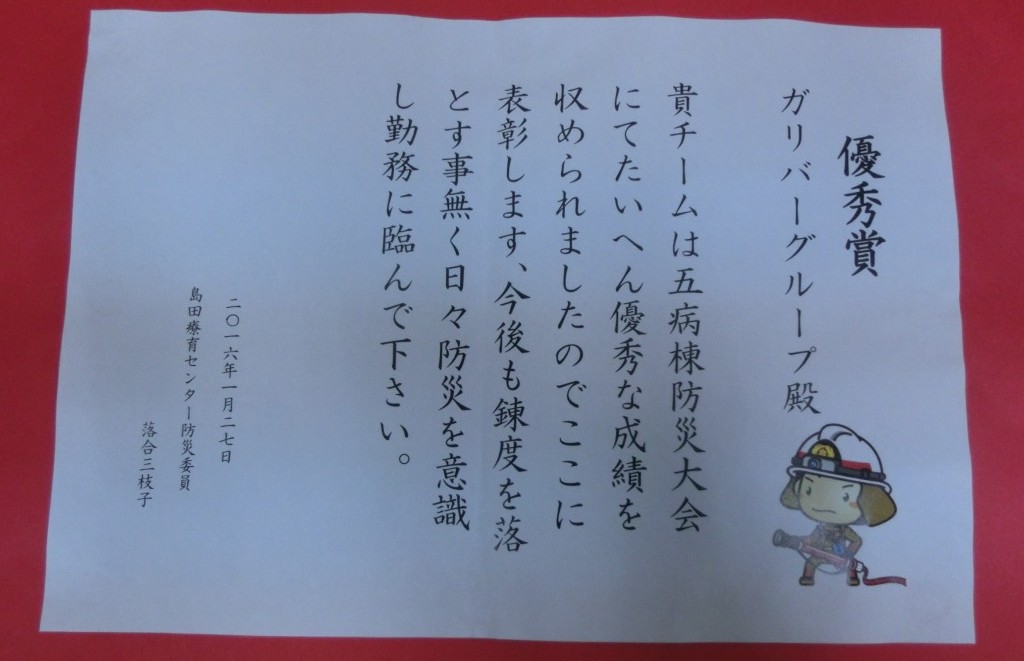 優秀賞
ガリバーグループ殿
貴チームは五病棟防災大会
にてたいへん優秀な成績を
収められましたのでここに
表彰します、今後も錬度を落
とす事無く日々防災を意識
し勤務に臨んで下さい。
二〇一六年一月二七日
島田療育センター防災委員
落合三枝子